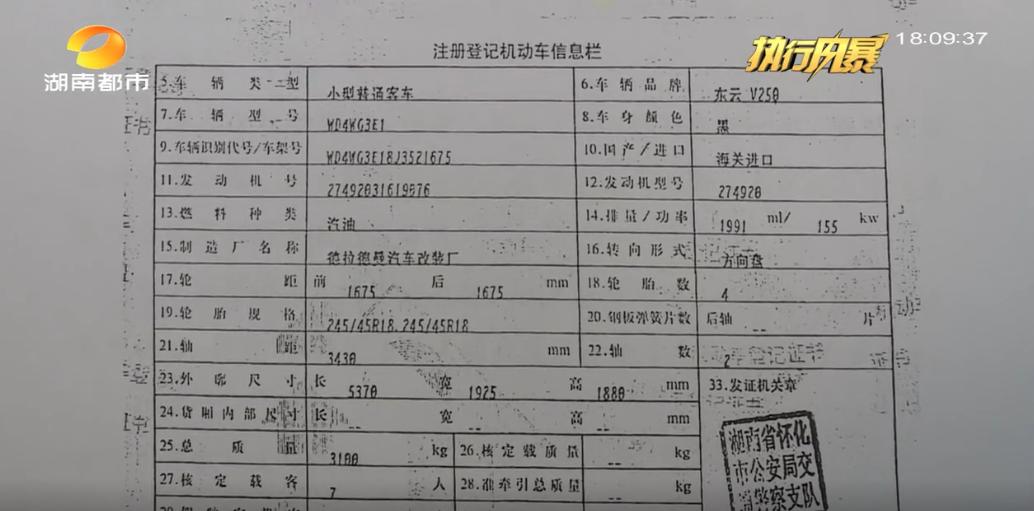 湖南都市
执行风暴
18:09:37
注册登记机动车信息栏
5.车辆类型 小型普通客车 6.车辆品牌 东云 V250
7.车辆型号 WD4WG3E1 8.车身颜色 黑
9.车辆识别代号/车架号 WD4WG3E18J3521675 10.国产/进口 海关进口
11.发动机号 27492031619076 12.发动机型号 274920
13.燃料种类 汽油 14.排量/功率 1991 ml/ 155 kw
15.制造厂名称 德拉德曼汽车改装厂 16.转向形式 方向盘
17.轮距 前 1675 后 1675 mm 18.轮胎数 4
19.轮胎规格 245/45R18,245/45R18 20.钢板弹簧片数 后轴 -- 片
21.轴距 3430 mm 22.轴数 2
23.外廓尺寸 长 5370 宽 1925 高 1880 mm 33.发证机关章
24.货厢内部尺寸 长 宽 -- 高 -- mm
25.总质量 3100 kg 26.核定载质量 -- kg
27.核定载客 7 人 28.准牵引总质量 -- kg
湖南省怀化
市公安局交
警察支队